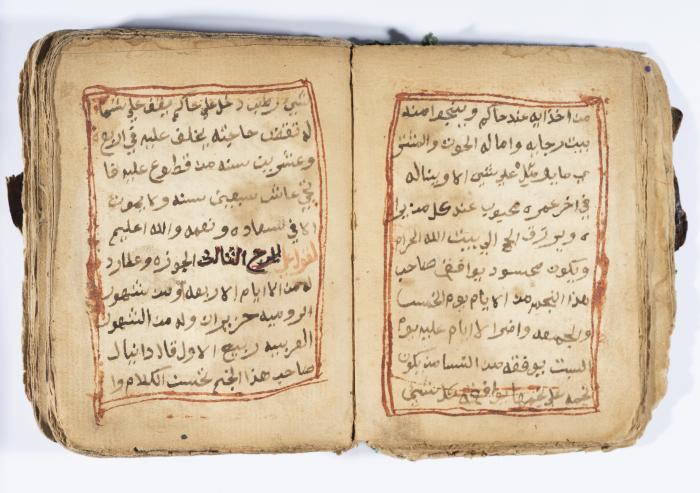 من اخذايه عند حاكم وينجوا منه
بيت رجايه واماله الحوت والمشتري
في اخر عمره محبوب عند كل من يرا
ه ويرزق الحج الي بيت الله الحرام
ويكون محسود يوافق صاحب
هذا النجم من الايام يوم الخميس
والجمعه واضر الايام عليه يوم
السبت يوافقه من النسا من يكون
نجمه علي نجمها يوافقه كل شي
دخل علي حاكم يقف علي شماله
له تقضي حاجته يخاف عليه في اربعة
وعشرين سنه من قطوع عليه فا
عاش سبعين سنه ولا يموت
الا في سعاده ونعمه والله اعلم
القول علي البرج الثالث الجوزه وعطارد
له من الايام الاربعه ومن شهور
الروميه حزيران وله من الشهور
العربيه ربيع الاول قال دانيال
صاحب هذا النجم يحسن الكلام وا